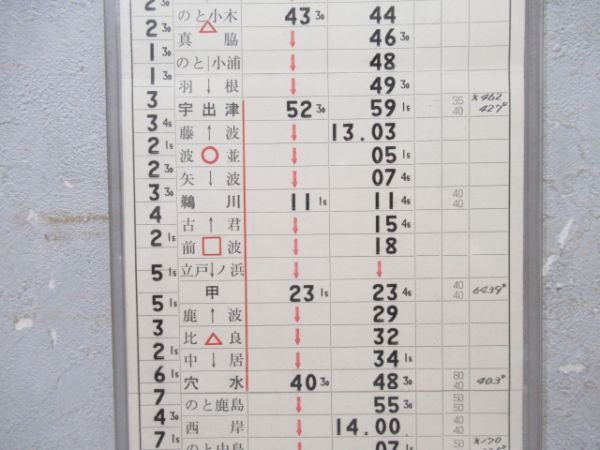 2 30
のと小木 43 30 44
2 30
真脇 46 30
1 30
のと小浦 48
1 30
羽根 49 30
3
宇出津 52 30 59 1s 35 40 ×462 427°
3 4s
藤波 13.03
2 1s
波並 05 1s
2 30
矢波 07 4s
3 30
鵜川 11 1s 11 4s 40 40
4
古君 15 4s
2 1s
前波 18
立戸ノ浜
5 1s
甲 23 1s 23 4s 40 40 6439°
5 1s
鹿波 29
3
比良 32
2 1s
中居 34 1s
6 1s
穴水 40 30 48 30 80 40 403°
7
のと鹿島 55 30 50 50
4 30
西岸 14.00 40 40
7 1s
のと中島 07 1s 50